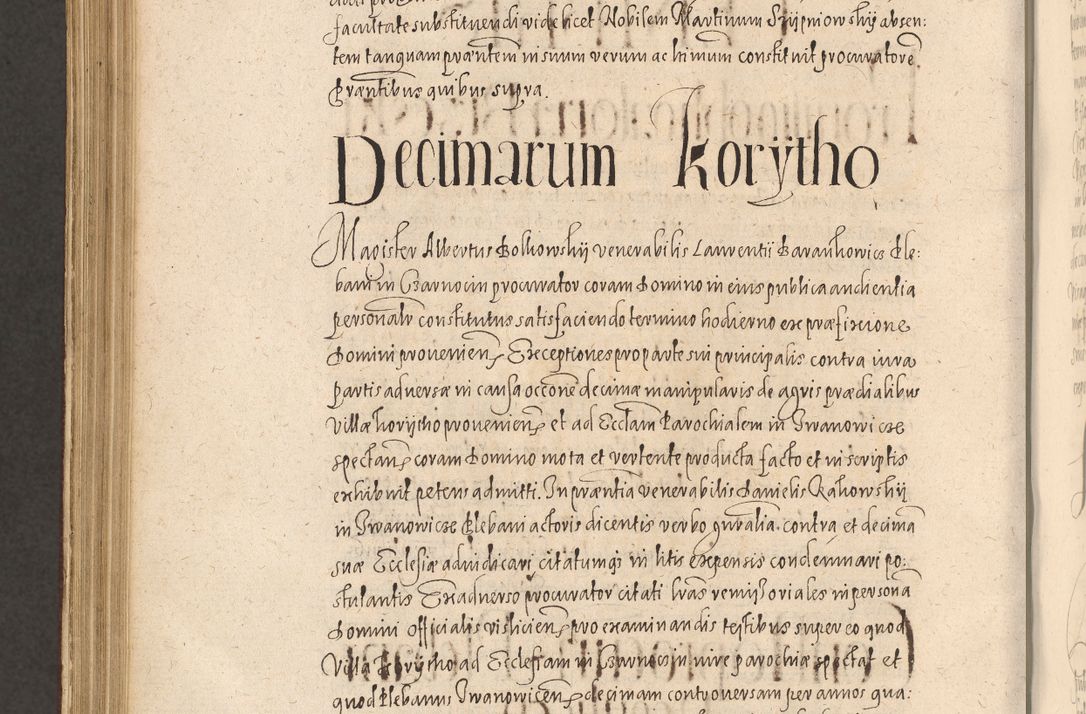 facultate substituendi videlicet Nobilem Martinum Srzypniowskij absen:
tem tanquam præntem in suum verum ac ltimum constituit procuratore
Præntibus quibus supra.
Decimarum Korÿtho
Magister Albertus Bolkowskij venerabilis Laurentii Barankowicz Ple:
bani in Czarnocin procurator coram Domino in eius publica audientia
personaltr constitutus satisfaciendo termino hodierno ex præfixione
Domini provenien Exceptiones pro parte sui principalis contra iura
partis adversæ in causa occone decimæ manipularis de agris prædialibus
Villæ Korytho provenien et ad Ecclam Parochialem in Iwanowicze
spectan coram Domino mota et vertente producta facto et in scriptis
exhibuit petens admitti. In præntia venerabilis Danielis Rakowskij
in Iwanowicze Plebani actoris dicentis verbo gnralia. contra et decimã
suæ Ecclesiæ adiudicari citatumqȝ in litis expensis condemnari po:
stulantis Ex adverso procurator citati lras remissoriales in personã
Domini Officialis vislicien pro examinandis testibus super eo quod
Villa Korytho ad Ecclesiam in Czarnocin iure parochiæ spectat et
quod Plebanus Iwanowicen decimam controversam per annos qua: